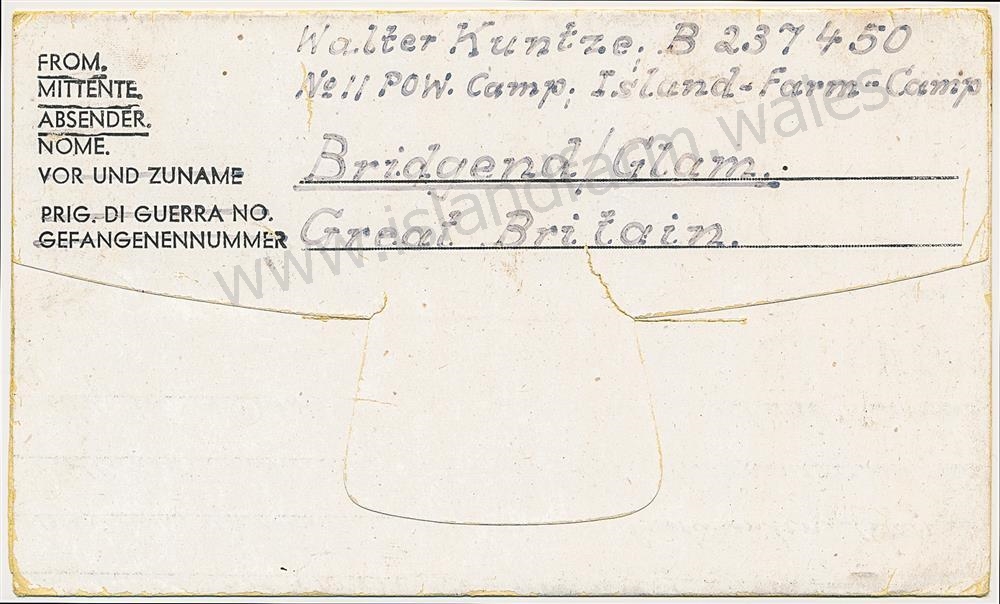 Walter Kuntze, B 237450
FROM.
MITTENTE.
No 11 POW. Camp, Island-Farm-Camp
ABSENDER.
NOME.
VOR UND ZUNAME
Bridgend/Glam.
PRIG. DI GUERRA NO.
GEFANGENENNUMMER
Great Britain.
www.islandfarm.wales